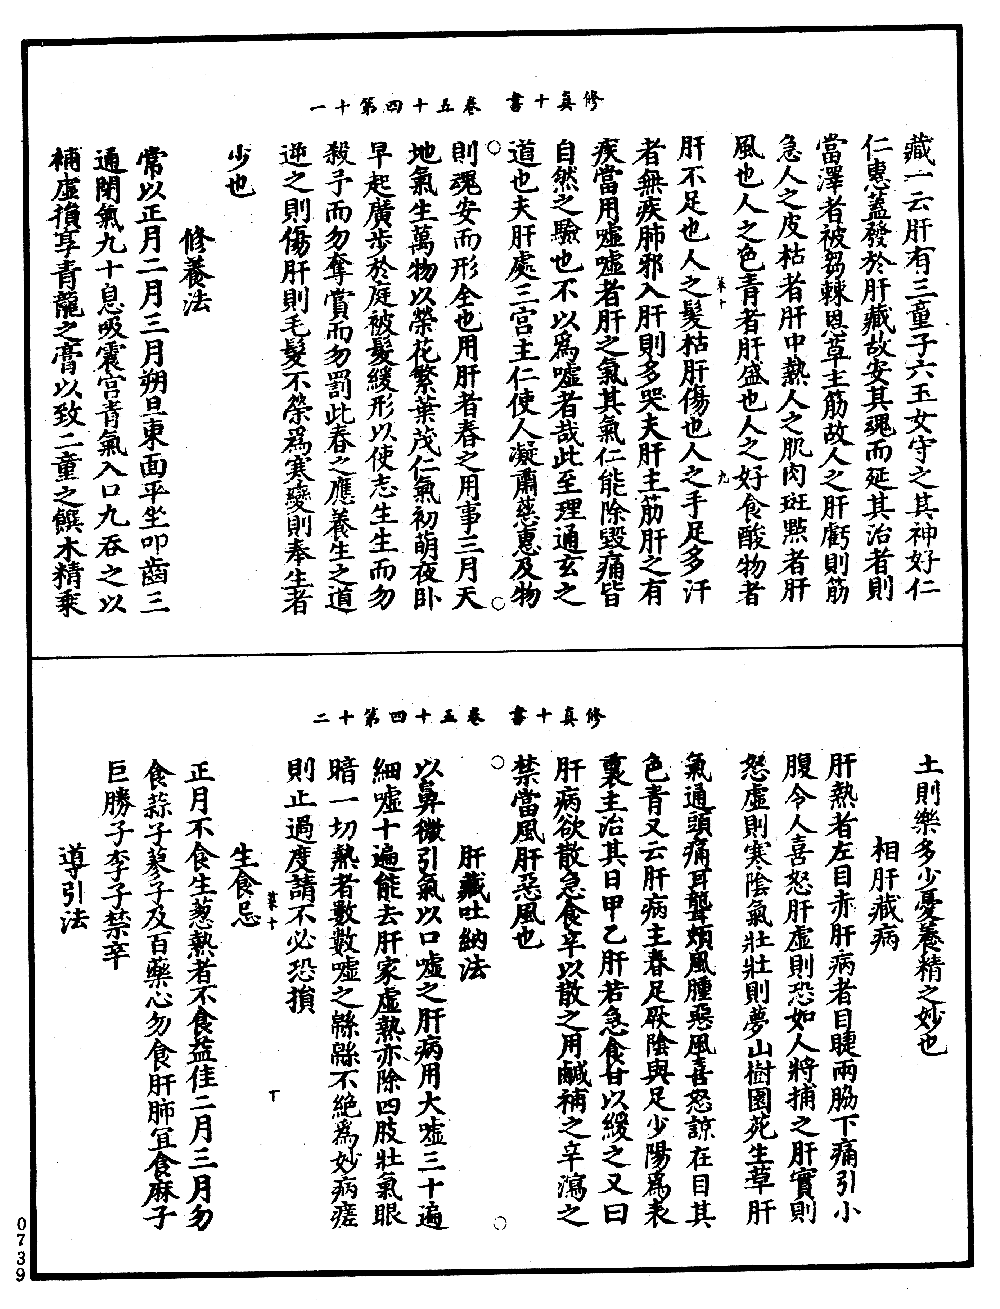 修真十書　卷五十四第十一
藏一云肝有三童子六玉女守之其神好仁
仁惠蓋發於肝藏故安其魂而延其治者則
當澤者被芻棘恩草主筋故人之肝虧則筋
急人之皮枯者肝中熱人之肌肉斑點者肝
風也人之色青者肝盛也人之好食酸物者
肝不足也人之髮枯肝傷也人之手足多汗
者無疾肺邪入肝則多哭夫肝主筋肝之有
疾當用噓噓者肝之氣其氣仁能除毀痛皆
自然之驗也不以為噓者哉此至理通玄之
道也夫肝處三宮主仁使人凝肅慈惠及物
則魂安而形全也用肝者春之用事三月天
地氣生萬物以榮花繁葉茂仁氣初萌夜卧
早起廣步於庭被髮緩形以使志生生而勿
殺予而勿奪賞而勿罰此春之應養生之道
逆之則傷肝則毛髮不榮為寒變則奉生者
少也
修養法
常以正月二月三月朔旦東面平坐叩齒三
通閉氣九十息吸震宮青氣入口九吞之以
補虛損享青龍之膏以致二童之饌木精乘
修真十書　卷五十四第十二
土則樂多少憂養精之妙也
相肝藏病
肝熱者左目赤肝病者目睫兩脇下痛引小
腹令人喜怒肝虛則恐如人將捕之肝實則
怒虛則寒陰氣壯壯則夢山樹園苑生草肝
氣通頭痛耳聾頰風腫惡風喜怒諒在目其
色青又云肝病主春足厥陰與足少陽為表
裏主治其日甲乙肝若急食甘以緩之又曰
肝病欲散急食辛以散之用鹹補之辛瀉之
禁當風肝惡風也
肝藏吐納法
以鼻微引氣以口噓之肝病用大噓三十遍
細噓十遍能去肝家虛熱亦除四肢壯氣眼
暗一切熱者數數噓之緜緜不絕為妙病瘥
則止過度請不必恐損
生食忌
正月不食生葱熱者不食益佳二月三月勿
食蒜子蓼子及百藥心勿食肝肺宜食麻子
巨勝子李子禁辛
導引法
0739